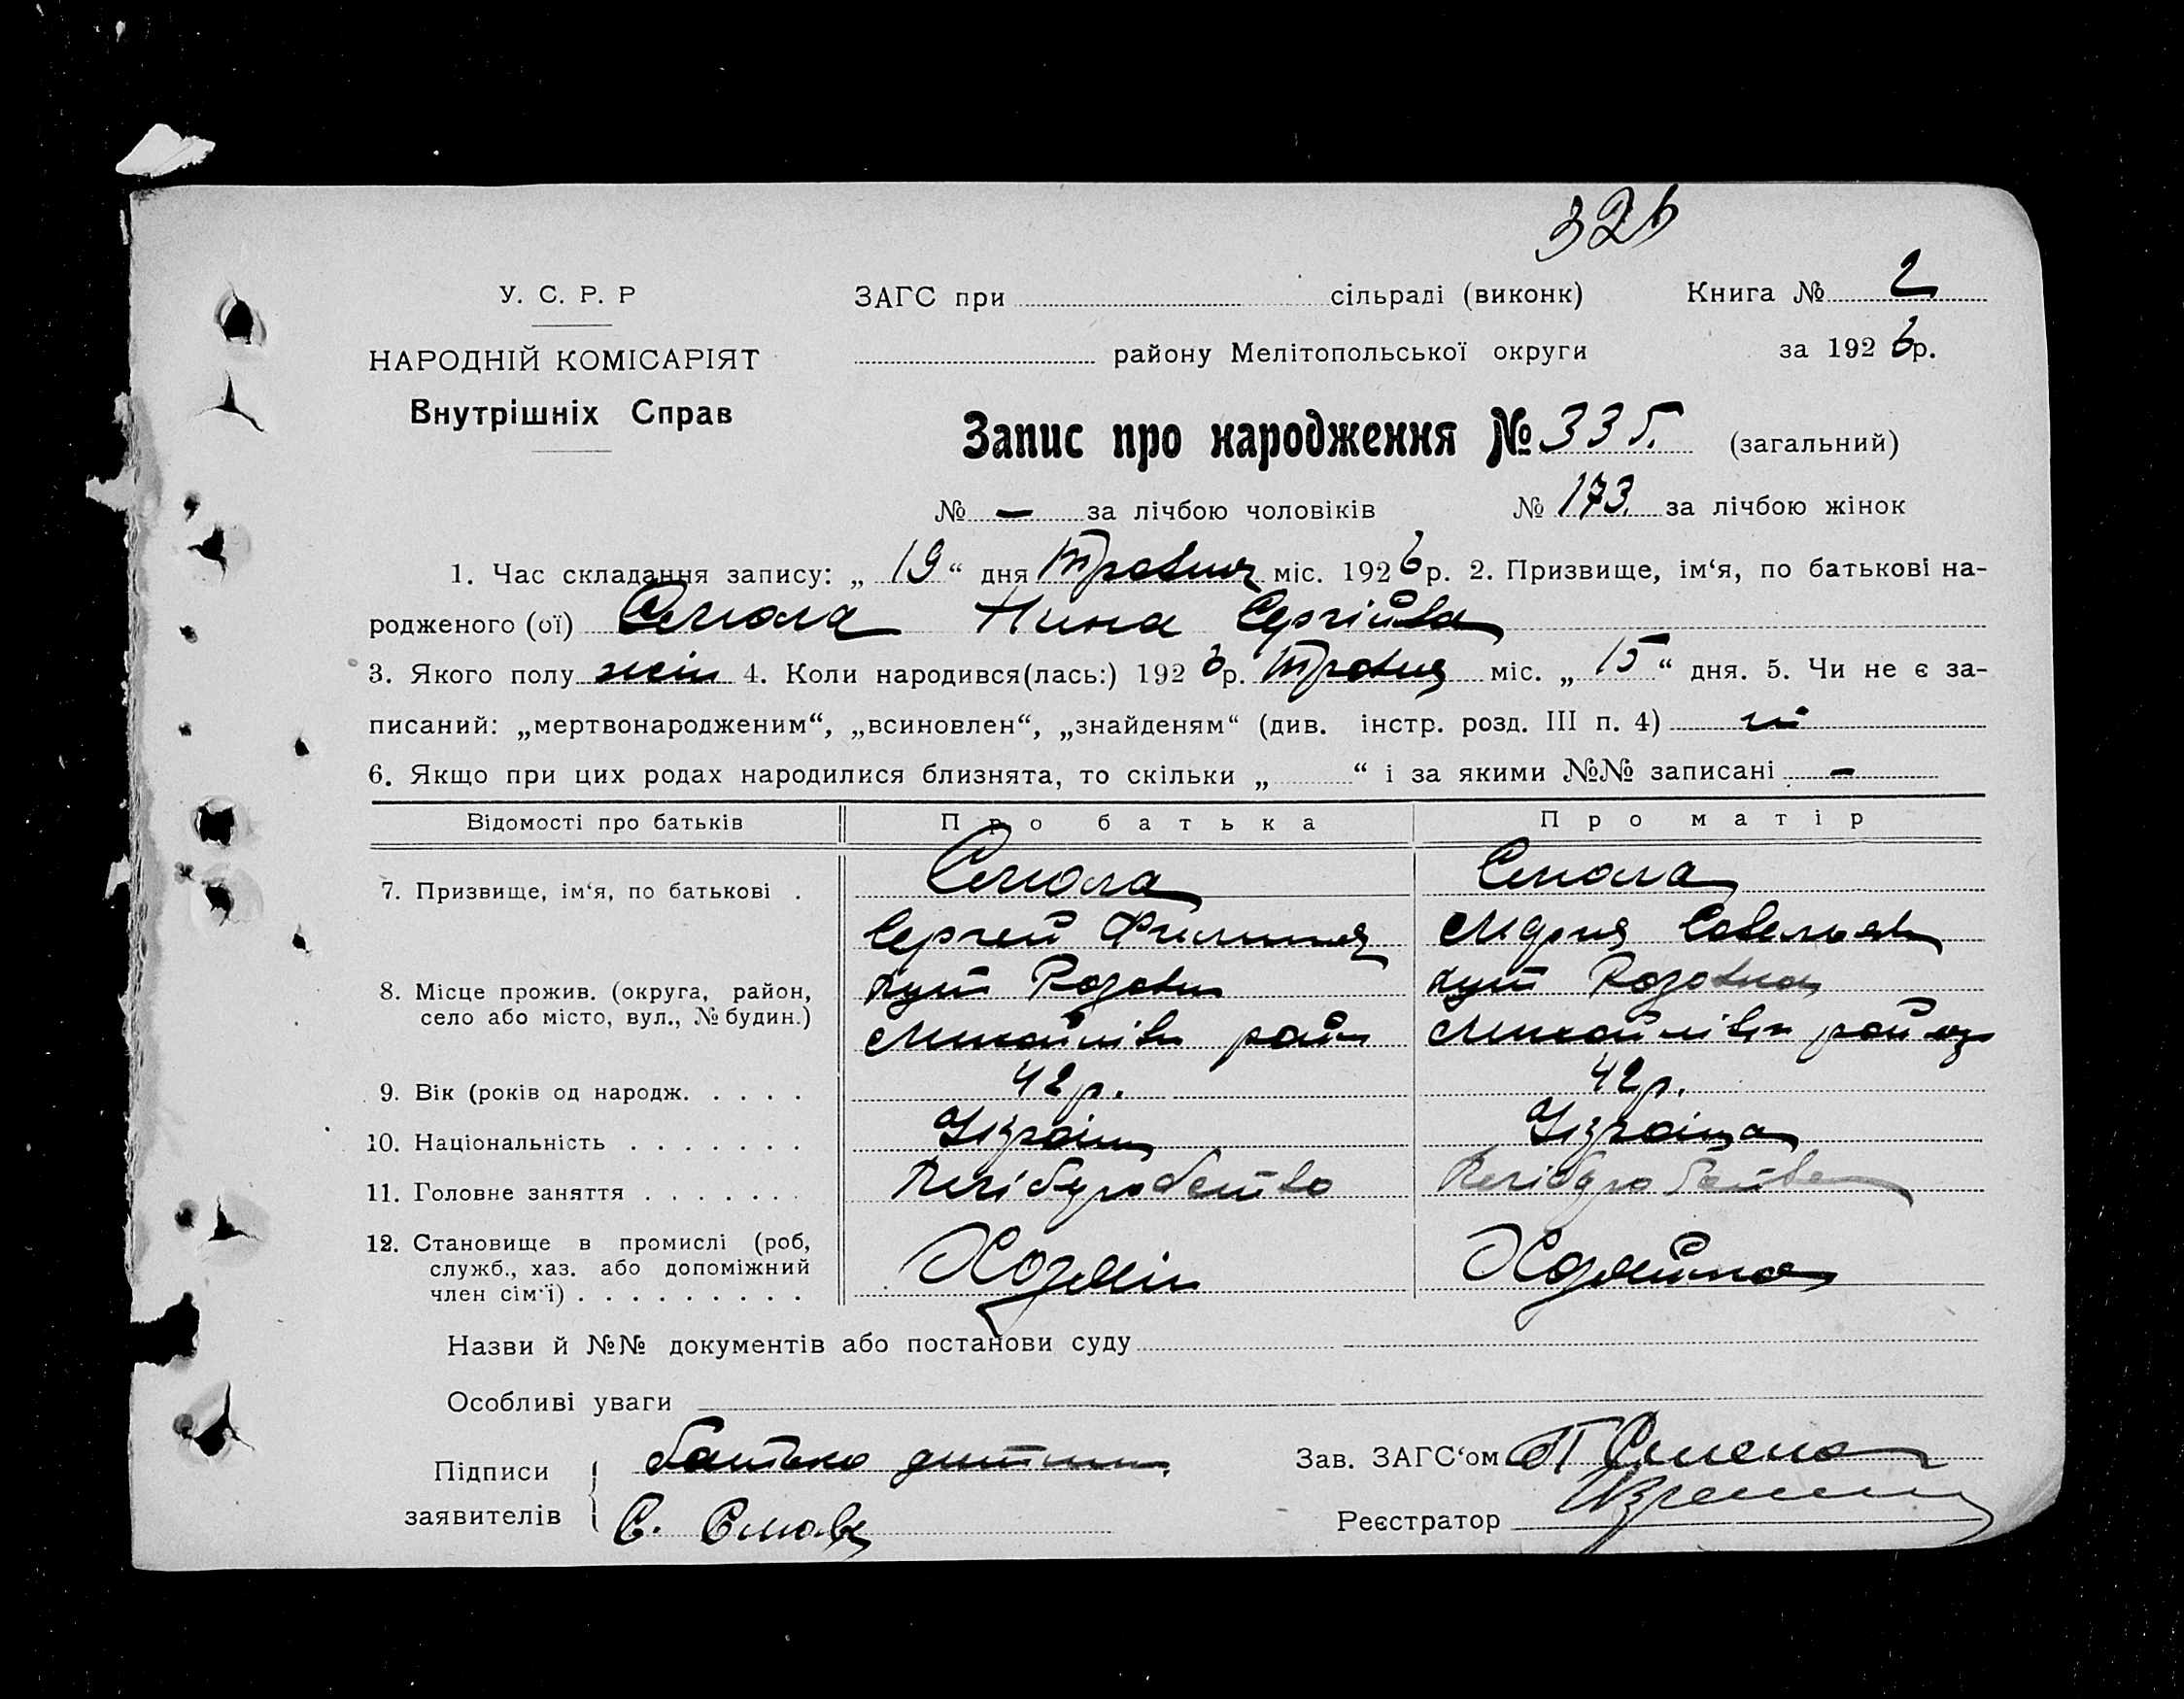 326
У. С. Р. Р
ЗАГС при сільраді (виконк) Книга № 2
НАРОДНІЙ КОМІСАРІЯТ
району Мелітопольської округи за 1926р.
Внутрішніх Справ
Запис про народження № 335. (загальний)
№ — за лічбою чоловіків № 173. за лічбою жінок
1. Час складання запису: „ 19 “ дня Травня міс. 1926р. 2. Призвище, ім‘я, по батькові на-
родженого (ої) Нина Сергіівна
3. Якого полу жін 4. Коли народився(лась:) 1926р. Травня міс. „ 15 “ дня. 5. Чи не є за-
писаний: „мертвонародженим“, „всиновлен“, „знайденям“ (див. інстр. розд. III п. 4) ні
6. Якщо при цих родах народилися близнята, то скільки „ “ і за якими №№ записані —
Відомості про батьків Про батька Про матір
7. Призвище, ім‘я, по батькові .
Сергей Мария
8. Місце прожив. (округа, район,
село або місто, вул., № будин.)
9. Вік (років од народж. . . . . 42р. 42р.
10. Національність . . . . . . .
11. Головне заняття . . . . . . . Хліборобство
12. Становище в промислі (роб,
служб., хаз. або допоміжний
член сім‘ї) . . . . . . . . . Хозяін Хозяйка
Назви й №№ документів або постанови суду
Особливі уваги
Підписи батько дитини
Зав. ЗАГС‘ом
заявителів С.
Реєстратор